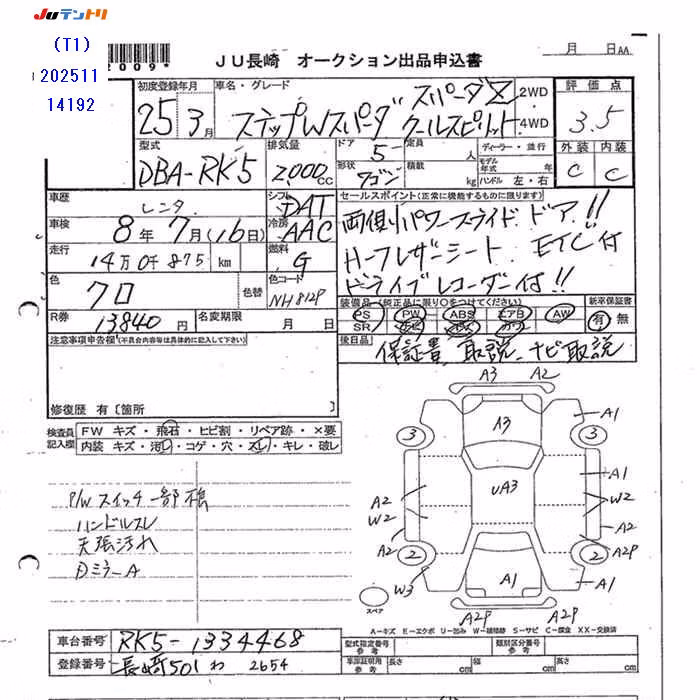 JUテントリ
(T1)
202511
14192
JU長崎 オークション出品申込書
月 日 AA
初度登録年月 車名・グレード 2WD 4WD 評価点
25 3月 ステップWスパーダ スパーダZ クールスピリット 3.5
外装 内装
C C
型式 排気量 ドア 定員 人 ディーラー・並行
DBA-RK5 2,000cc 5
形状 ワゴン 積載 kg モデル年式 年 ハンドル 左・右
車歴 レンタ シフト DAT
セールスポイント(正常に機能するものに限ります)
車検 8年7月(16日) 冷房 AAC
両側パワースライドドア!!
走行 14万0千875 km 燃料 G
ハーフレザーシート ETC付
ドライブレコーダー付!!
色 クロ 色替 色コード NH812P
装備品(純正品に限り○をつけてください) 新車保証書
PS PW ABS エアB AW 有 無
SR カワ
R券 13840円 名変期限 月 日
注意事項申告欄(不具合内容等は具体的に記入して下さい)
後日品 保証書 取説 ナビ取説
修復歴 有〔箇所 〕
検査員記入欄
FW キズ・飛石・ヒビ割・リペア跡・×要
内装 キズ・汚レ・コゲ・穴・スレ・キレ・破レ
A3 A2
A1
3 A3 3
A1
UA3
A2 W2
W2
A2
A2
2 2 A2P
W3
A1
A1
A2P A2P
スペア
P/Wスイッチ一部傷
ハンドルスレ
天張汚れ
Dミラー A
A-キズ E-エクボ U-凹み W-補修跡 S-サビ C-腐食 XX-交換済
車台番号 RK5-1334468
型式指定番号 参考 類別区分番号 参考
登録番号 長崎501 わ 2654
車庫証明用 参考 長さ cm 幅 cm 高さ cm